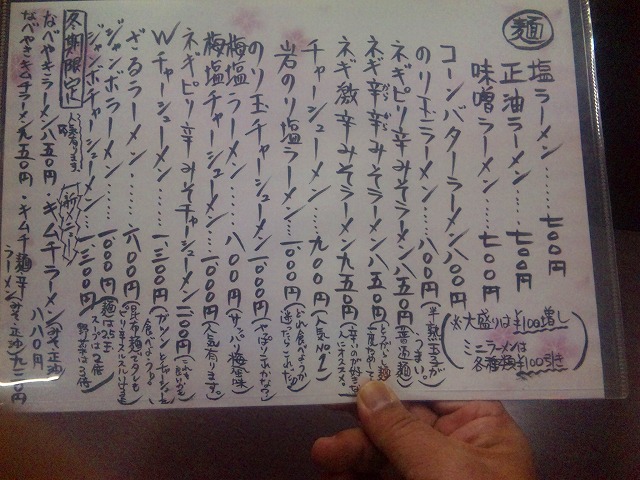 麺
塩ラーメン……七〇〇円
正油ラーメン……七〇〇円
味噌ラーメン……七〇〇円
コーンバターラーメン八〇〇円
のり玉ラーメン……八〇〇円(半熟玉子がうまい。)
ネギピリ辛みそラーメン八五〇円(普通麺)
ネギ辛辛みそラーメン八五〇円
ネギ激辛みそラーメン九五〇円(辛いのが好きな人にオススメ。)
チャーシューメン……九〇〇円(人気No.1)
岩のり塩ラーメン……一〇〇〇円(どれ食べようか迷ったらこれだ!)
のり玉チャーシューメン……一〇〇〇円(やっぱこれかなぁ)
梅塩ラーメン……八〇〇円(サッパリ梅風味)
梅塩チャーシューメン……一〇〇〇円(人気有ります。)
ネギピリ辛みそチャーシューメン一一〇〇円
Wチャーシューメン……一、三〇〇円(ガッツンとチャーシューを食べよう!)
ざるラーメン……八〇〇円
ジャンボラーメン……一〇〇〇円(麺は2.5玉スープは2倍
ジャンボチャーシューメン……一、三〇〇円 野菜は3倍)
(※大盛りは¥100増し
ミニラーメンは各種類¥100引き)
冬期限定
人気有ります。
なべやきラーメン八五〇円・キムチラーメン(みそ、正油)八八〇円
新メニュー
なべやきキムチラーメン九五〇円・キムチ麺辛ラーメン(みそ、正油)九三〇円